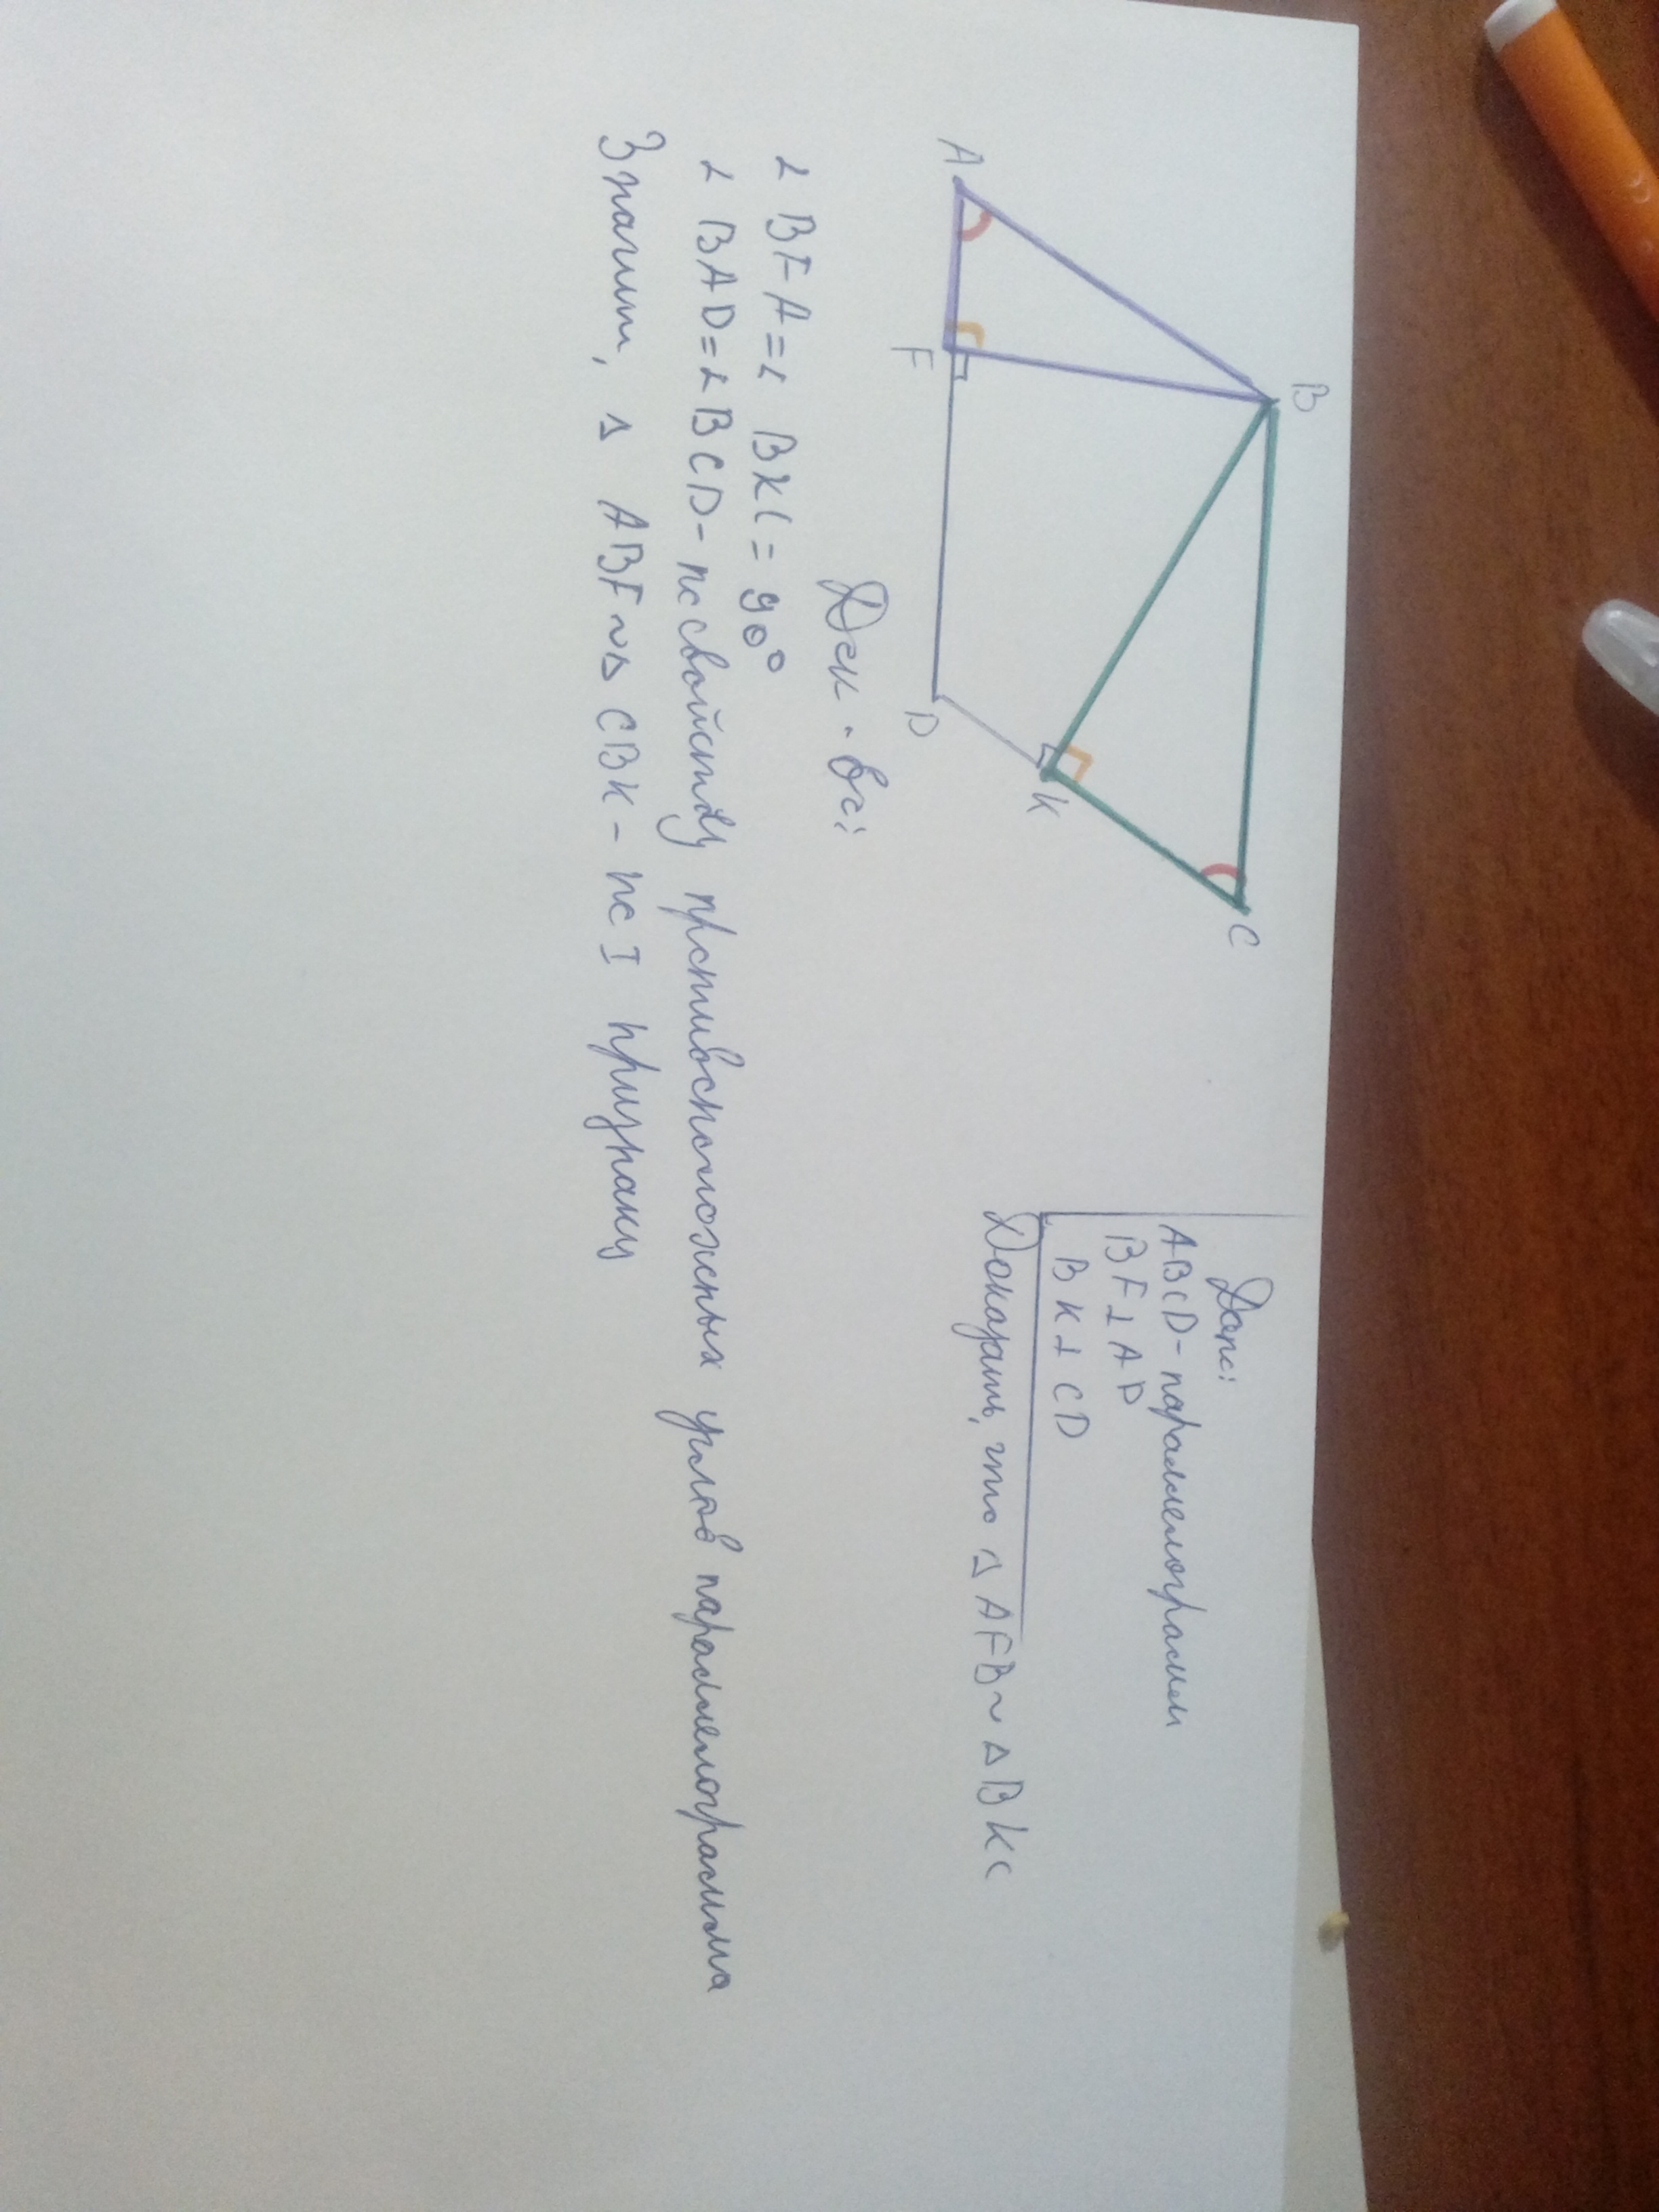 B
C
A
F
D
K
Дано:
ABCD - параллелограмм
BF⊥AD
BK⊥CD
Доказать, что △AFB ~ △BKC
Док-во:
∠BFA = ∠BKC = 90°
∠BAD = ∠BCD - по свойству противоположных углов параллелограмма
Значит, △ABF ~ △CBK - по I признаку